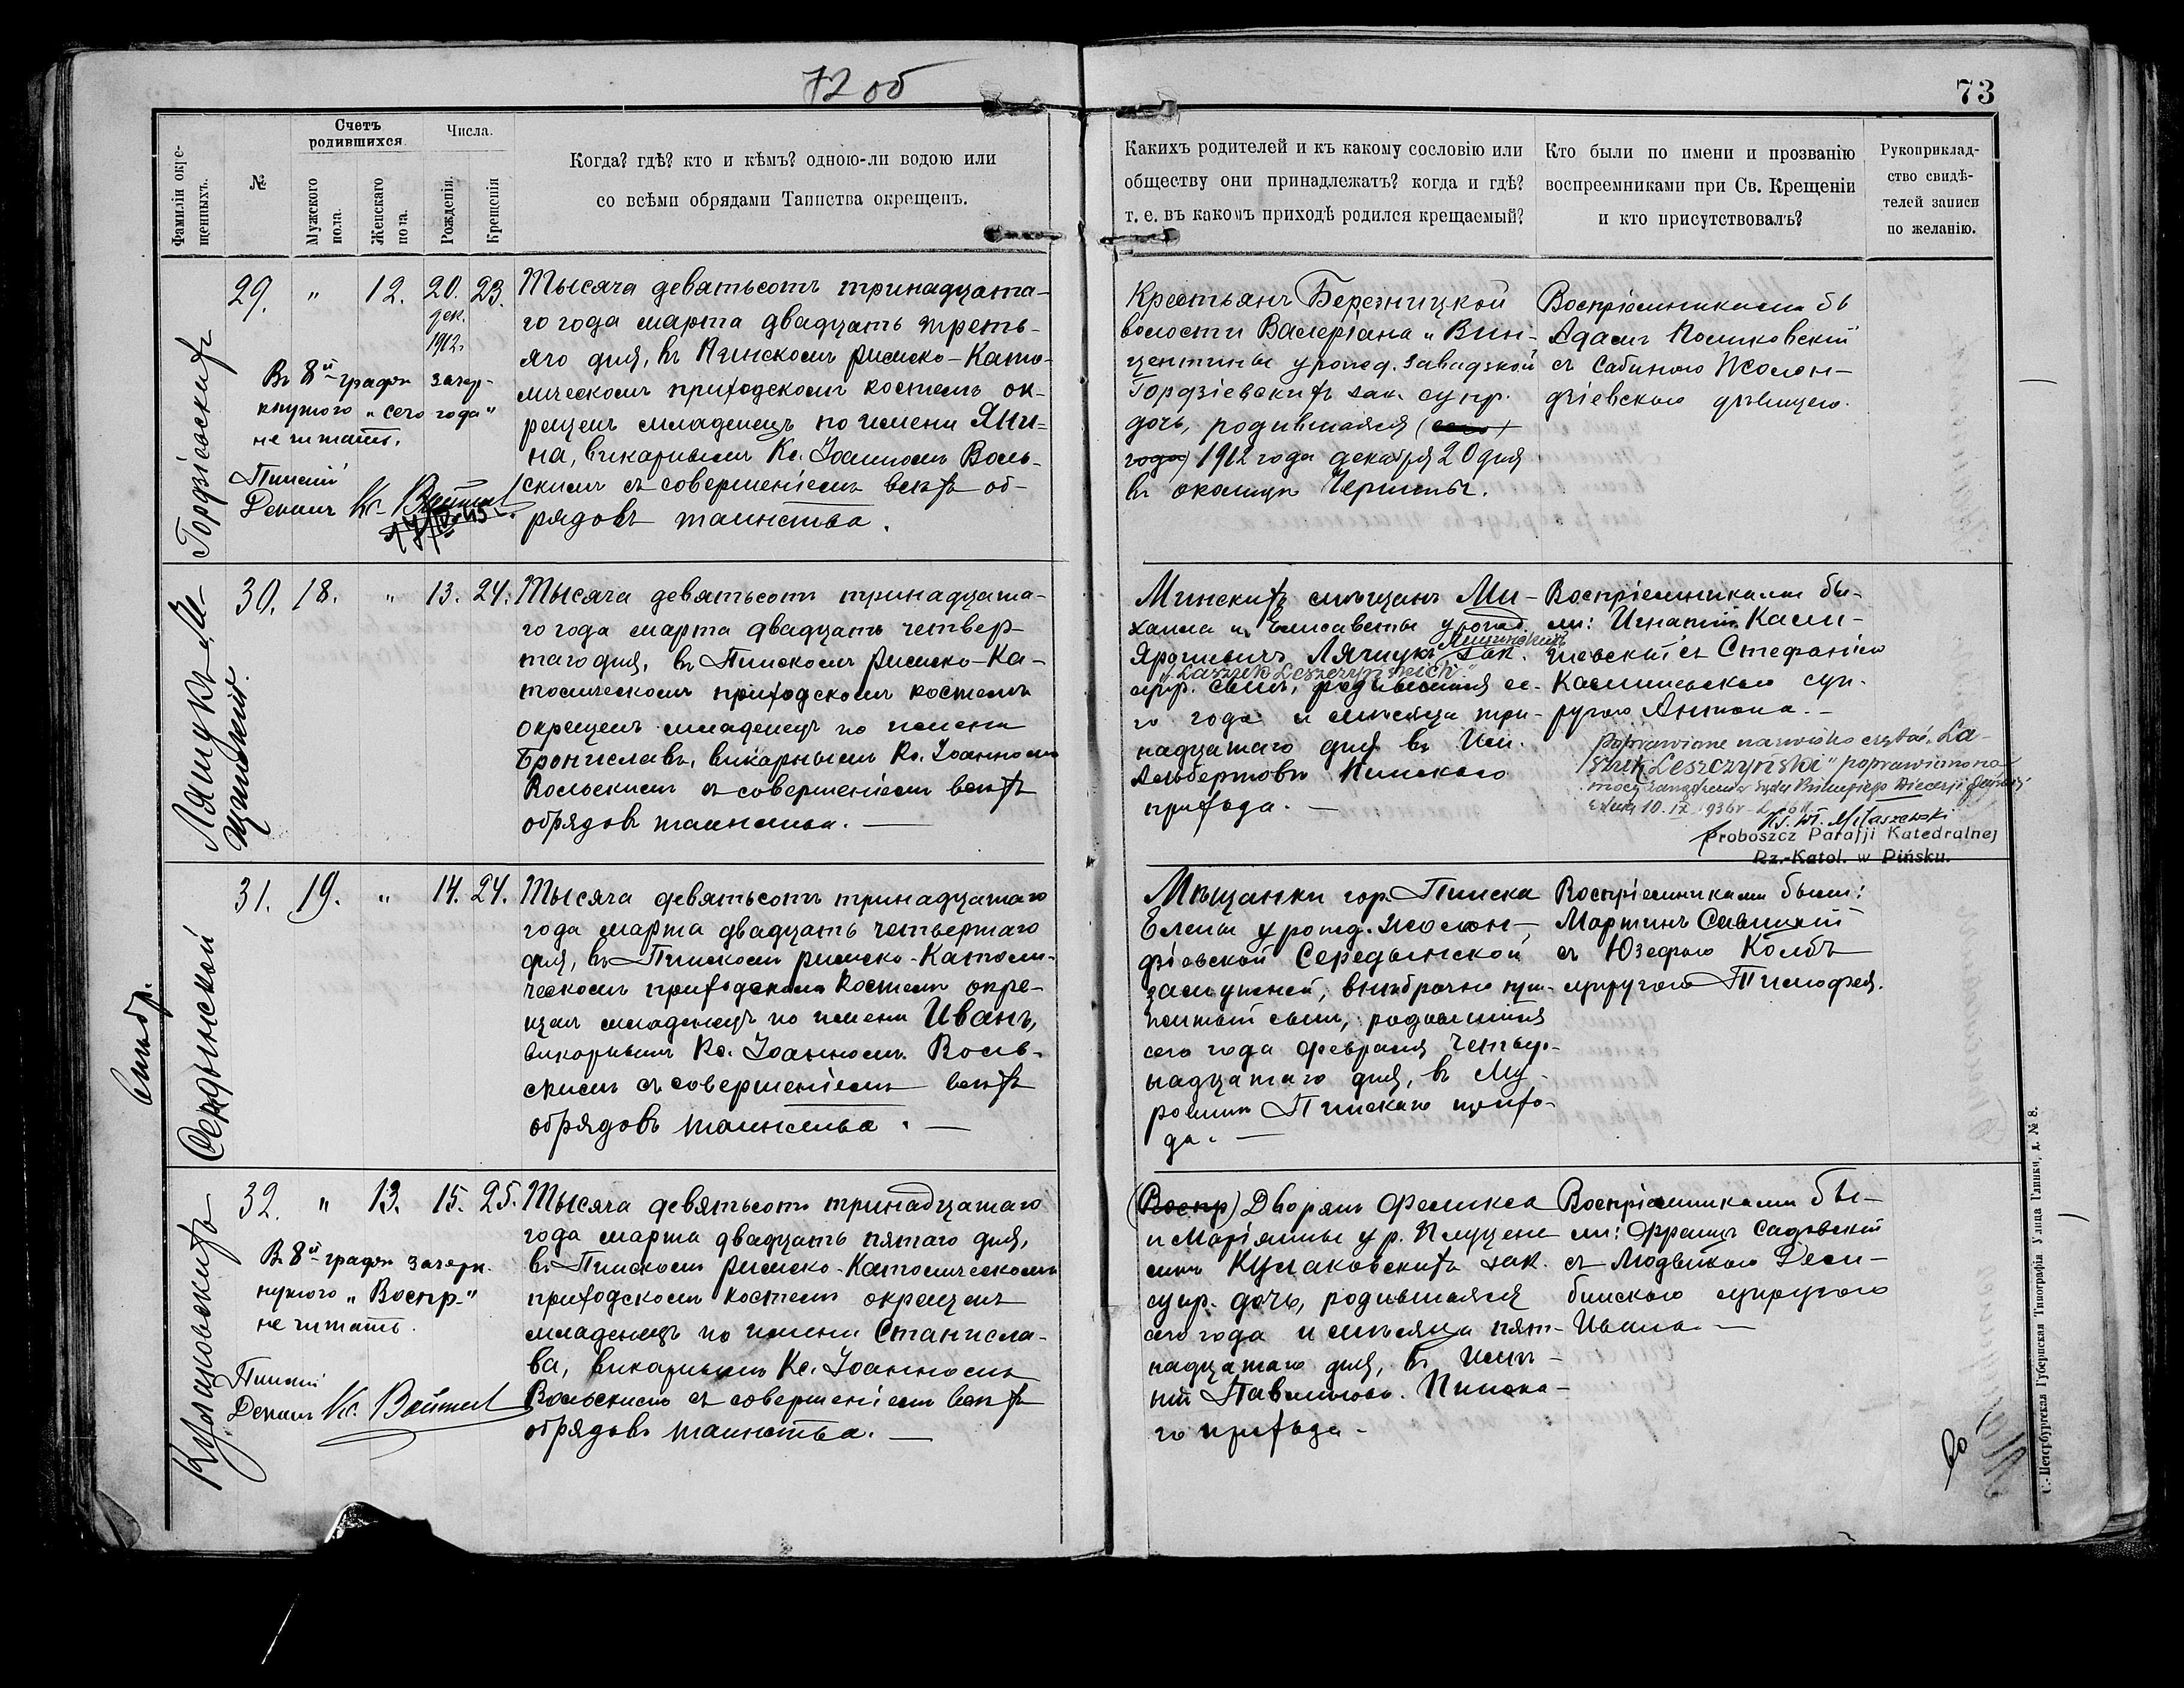 72 об
73
Фамиліи окрещенныхъ.
№
Счетъ родившихся
Мужского пола.
Женскаго пола.
Числа.
Рожденія.
Крещенія
Когда? гдѣ? кто и кѣмъ? одною-ли водою или
со всѣми обрядами Таинства окрещенъ.
Какихъ родителей и къ какому сословію или
обществу они принадлежатъ? когда и гдѣ?
т. е. въ какомъ приходѣ родился крещаемый?
Кто были по имени и прозванію
воспреемниками при Св. Крещеніи
и кто присутствовалъ?
Рукоприклад-
ство свидѣ-
телей записи
по желанію.
Гордзіевскихъ
29. " 12. 20. 23.
дек.
1912 г.
Въ 8й графѣ зачер-
кнутого „сего года"
не читать.
Пинскій
Деканъ Кс.
Тысяча девятьсотъ тринадцата-
го года марта двадцать треть-
яго дня, въ Пинскомъ римско-Като-
лическомъ приходскомъ костелѣ ок-
рещенъ младенецъ по имени Яни-
на, викарнымъ Кс. Іоанномъ Воль-
скимъ съ совершеніемъ всѣхъ об-
рядовъ таинства.
Крестьянъ Бережницкой
волости Валеріана и Вин-
центины урожд. Завадзкой
Гордзіевскихъ зак. супр.
дочь, родившаяся (сего
года) 1912 года декабря 20 дня
въ околицѣ
Воспріемниками бы
Адамъ
съ Сабиною Жолон-
дзіевскою дѣвицею.
30. 18. " 13. 24.
Тысяча девятьсотъ тринадцата-
го года марта двадцать четвер-
таго дня, въ Пинскомъ римско-Ка-
толическомъ приходскомъ костелѣ
окрещенъ младенецъ по имени
Брониславъ, викарнымъ Кс. Іоанномъ
Вольскимъ съ совершеніемъ всѣхъ
обрядовъ таинства. —
Минскихъ мѣщанъ Ми-
хаила и Елисаветы урожд.
Лящукъ зак.
„Laszuk Leszczyńskich"
супр. сынъ, родившійся се-
го года и мѣсяца три-
надцатаго дня въ Им.
Альбертовѣ Пинскаго
прихода. —
Воспріемниками бы-
ли: Игнатій
съ Стефаніею
суп-
ругою Антона. —
Poprawione nazwisko czytać „La-
szuk Leszczyński" poprawiono na
mocy
10. IX. 1936 r.
Ks. W. Milaszewski
Proboszcz Parafji Katedralnej
Rz.-Katol. w Pińsku.
внѣбр.
Середынской
31. 19. " 14. 24.
Тысяча девятьсотъ тринадцатаго
года марта двадцать четвертаго
дня, въ Пинскомъ римско-Католи-
ческомъ приходскомъ костелѣ окре-
щенъ младенецъ по имени Иванъ,
викарнымъ Кс. Іоанномъ Воль-
скимъ съ совершеніемъ всѣхъ
обрядовъ таинства. —
Мѣщанки гор. Пинска
Елены урожд. Жолон-
дзіевской Середынской
замужней, внѣбрачно при-
житый сынъ, родившійся
сего года февраля четыр-
надцатаго дня, въ
Пинскаго прихо-
да. —
Воспріемниками были:
Мартинъ Савицкій
съ Юзефою Колбъ
супругою Тимофея.
Кулаковскихъ
32. " 13. 15. 25.
Въ 8й графѣ зачерк-
нутого „Воспр."
не читать.
Пинскій
Деканъ Кс.
Тысяча девятьсотъ тринадцатаго
года марта двадцать пятаго дня,
въ Пинскомъ римско-Католическомъ
приходскомъ костелѣ окрещенъ
младенецъ по имени Станисла-
ва, викарнымъ Кс. Іоанномъ
Вольскимъ съ совершеніемъ всѣхъ
обрядовъ таинства. —
(Воспр) Дворянъ Феликса
и Маріянны ур.
Кулаковскихъ зак.
супр. дочь, родившаяся
сего года и мѣсяца пят-
надцатаго дня, въ Имѣ-
ніи Павлиново Пинска-
го прихода.
Воспріемниками бы-
ли: Францъ Садовскій
съ Людвикою Дем-
бинскою супругою
Ивана. —
С.-Петербургская Губернская Типографія Улица Глинки, д. № 8.